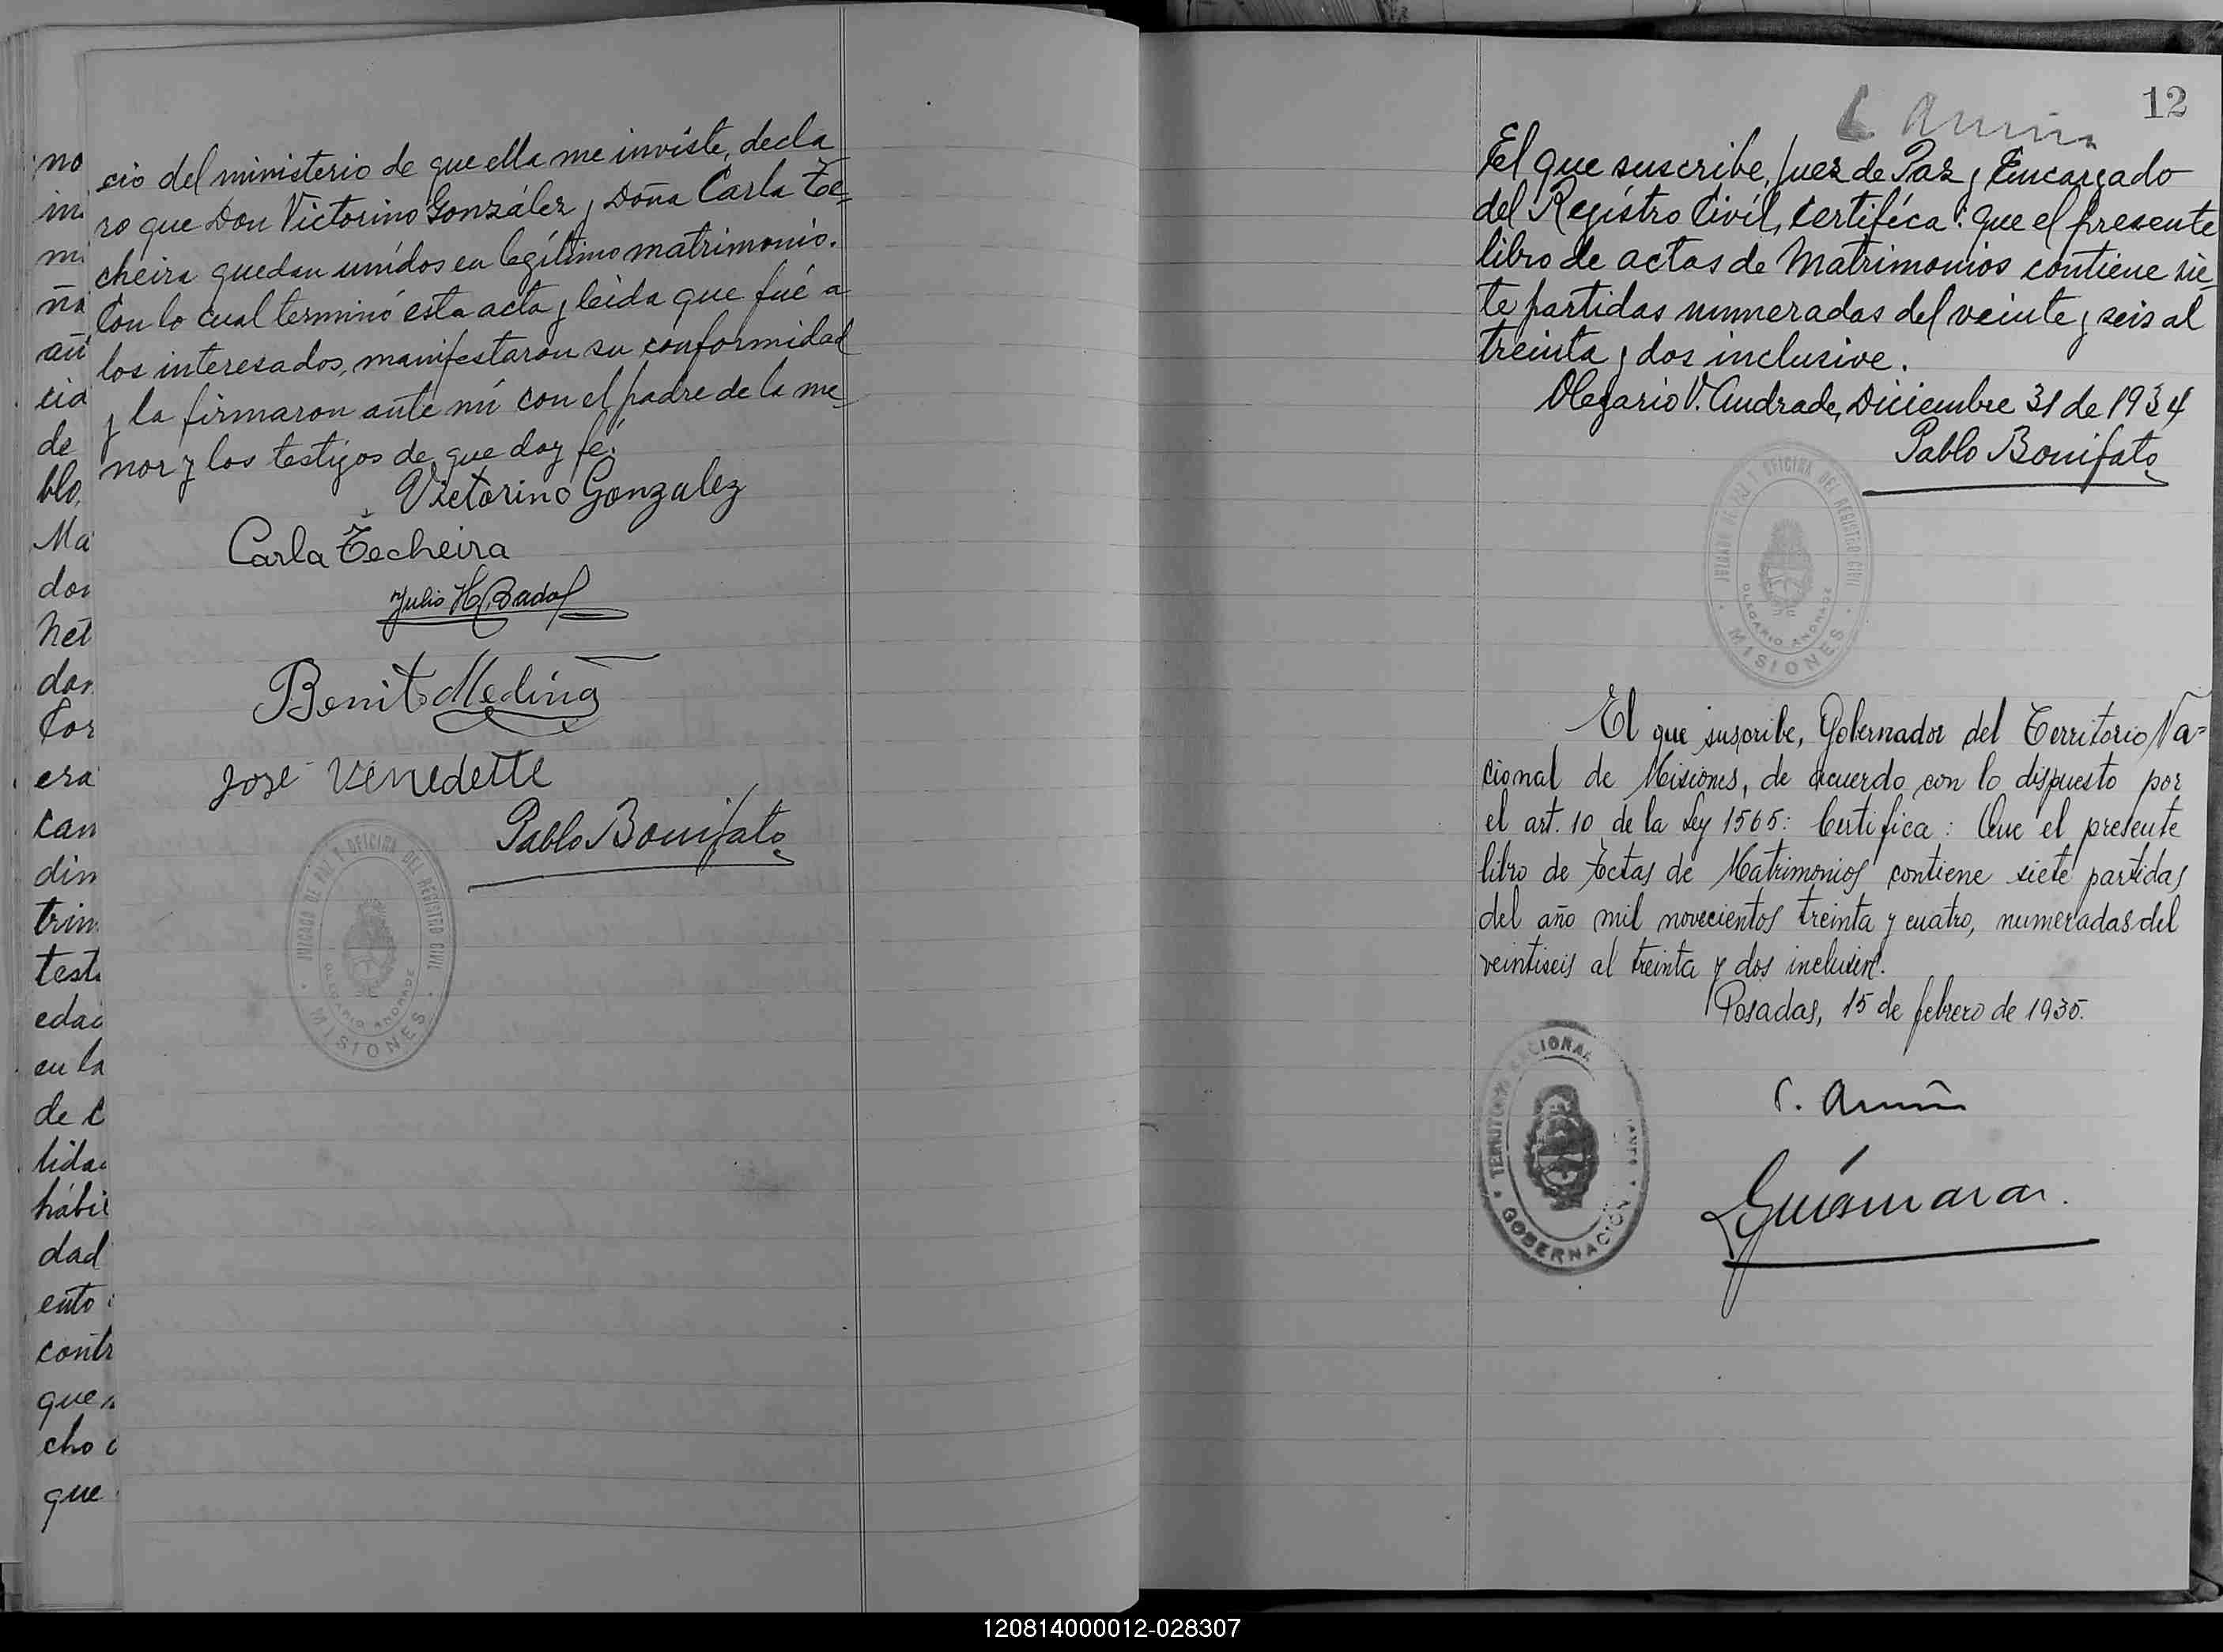 no
in
mi
ña
añ
cia
de
blo,
Ma
dor
net
dor
Cor
era
can
din
trim
testi
edad
en la
de C
lida
hábil
dad
ento
contr
que
cho
que
cio del ministerio de que ella me inviste, decla
ro que Don Victorino González y Doña Carla Te-
cheira quedan unidos en legítimo matrimonio.
Con lo cual terminó esta acta y leída que fué a
los interesados, manifestaron su conformidad
y la firmaron ante mí con el padre de la me-
nor y los testigos de que doy fé.
Victorino Gonzalez
Carla Techeira
Julio H. Badal
Benito Medina
José Venedette
Pablo Bonifato
JUZGADO DE PAZ Y OFICINA DEL REGISTRO CIVIL
OLEGARIO ANDRADE
MISIONES
12
El que suscribe, Juez de Paz y Encargado
del Registro Civil, certifica: que el presente
libro de actas de Matrimonios contiene sie-
te partidas numeradas del veinte y seis al
treinta y dos inclusive.
Olegario V. Andrade, Diciembre 31 de 1934
Pablo Bonifato
JUZGADO DE PAZ Y OFICINA DEL REGISTRO CIVIL
OLEGARIO ANDRADE
MISIONES
El que suscribe, Gobernador del Territorio Na=
cional de Misiones, de acuerdo con lo dispuesto por
el art. 10 de la Ley 1565: Certifica: Que el presente
libro de Actas de Matrimonios contiene siete partidas
del año mil novecientos treinta y cuatro, numeradas del
veintiseis al treinta y dos inclusive.
Posadas, 15 de febrero de 1935.
TERRITORIO NACIONAL
GOBERNACIÓN
120814000012-028307